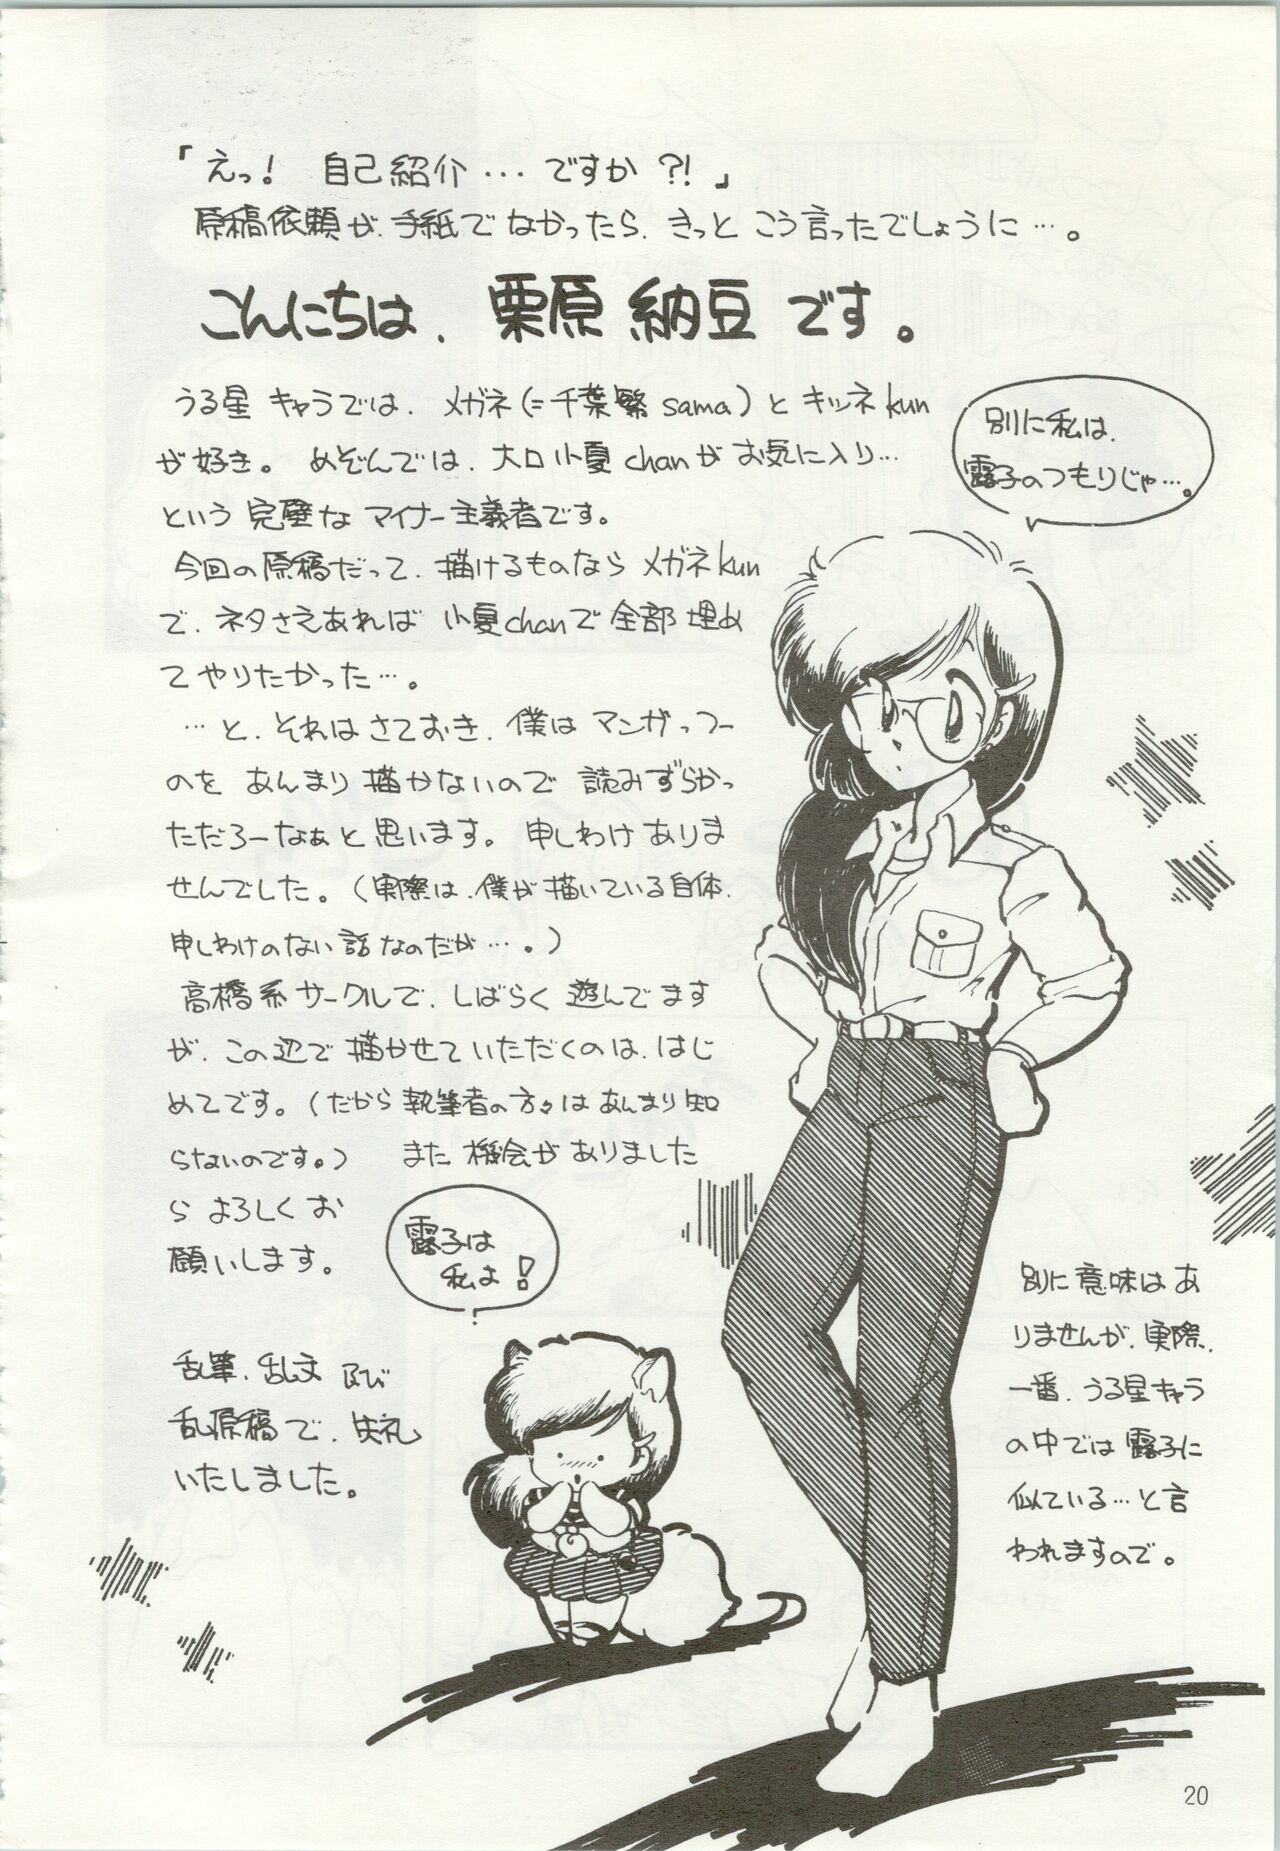 「えっ！ 自己紹介…ですか？！」
原稿依頼が、手紙でなかったら、きっと こう言ったでしょうに…。
こんにちは、栗原 納豆 です。
うる星 キャラでは、メガネ(=千葉繁 sama)と キツネkun
が好き。めぞんでは、大口小夏chanがお気に入り…
という 完璧な マイナー主義者です。
今回の原稿だって、描けるものなら メガネkun
で、ネタさえあれば 小夏chanで全部埋め
てやりたかった…。
…と、それはさておき、僕は マンガっつー
のを あんまり描かないので 読みずらかっ
ただろーなぁと思います。申しわけありま
せんでした。(実際は、僕が描いている自体、
申しわけのない話なのだが…。)
高橋系サークルで、しばらく 遊んでます
が、この辺で描かせていただくのは、はじ
めてです。(だから 執筆者の方々はあんまり知
らないのです。) また 機会がありました
ら よろしくお
願いします。
乱筆、乱文 及び
乱原稿で、失礼
いたしました。
別に私は、
露子のつもりじゃ…。
露子は
私よ！
別に意味はあ
りませんが、実際、
一番、うる星キャラ
の中では 露子に
似ている…と言
われますので。
20